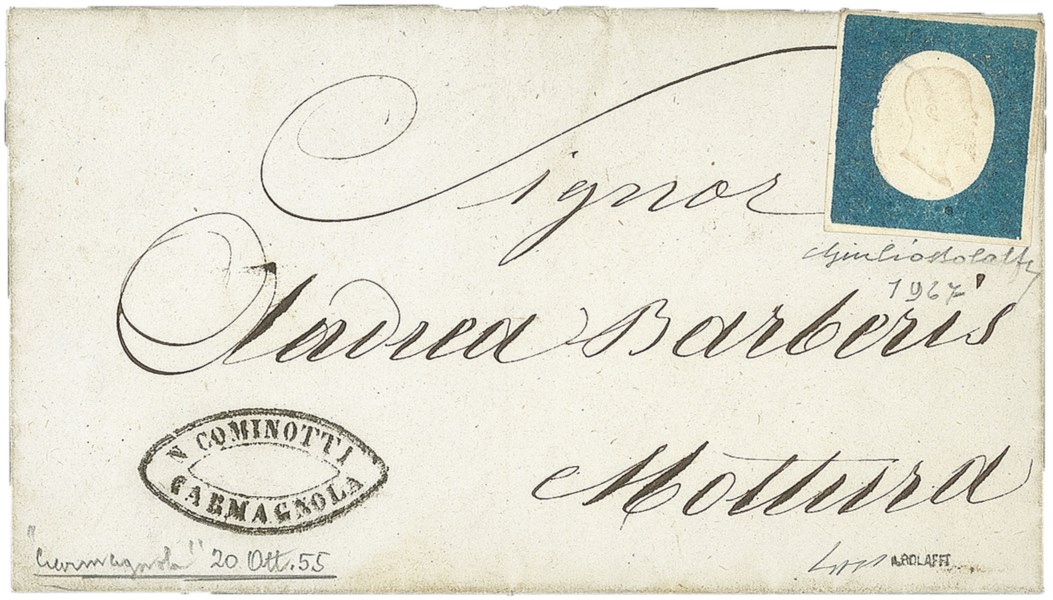 Signor
Andrea Barberis
Mottura
Giulio Bolaffi
1967
N COMINOTTI
CARMAGNOLA
"Carmagnola" 20 Ott. 55
A.BOLAFFI